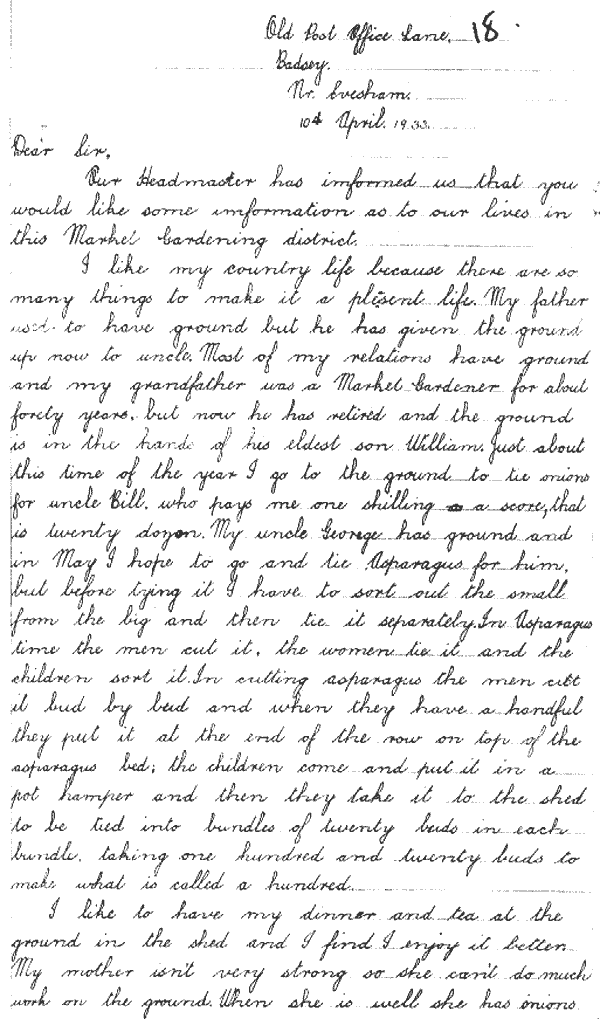 Old Post Office Lane, 18
Badsey.
Nr. Evesham.
10th April. 1933.
Dear Sir,
Our Headmaster has imformed us that you
would like some imformation as to our lives in
this Market Gardening district.
I like my country life because there are so
many things to make it a plesent life. My father
used to have ground but he has given the ground
up now to uncle. Most of my relations have ground
and my grandfather was a Market Gardener for about
forety years, but now he has retired and the ground
is in the hands of his eldest son William. Just about
this time of the year I go to the ground to tie onions
for uncle Bill, who pays me one shilling a score, that
is twenty dozon. My uncle Georege has ground and
in May I hope to go and tie Asparagus for him,
but before tying it I have to sort out the small
from the big and then tie it separately. In Asparagus
time the men cut it, the women tie it and the
children sort it. In cutting asparagus the men cut
it bud by bud and when they have a handful
they put it at the end of the row on top of the
asparagus bed; the children come and put it in a
pot hamper and then they take it to the shed
to be tied into bundles of twenty buds in each
bundle, taking one hundred and twenty buds to
make what is called a hundred.
I like to have my dinner and tea at the
ground in the shed and I find I enjoy it better.
My mother isn't very strong so she can't do much
work on the ground. When she is well she has onions